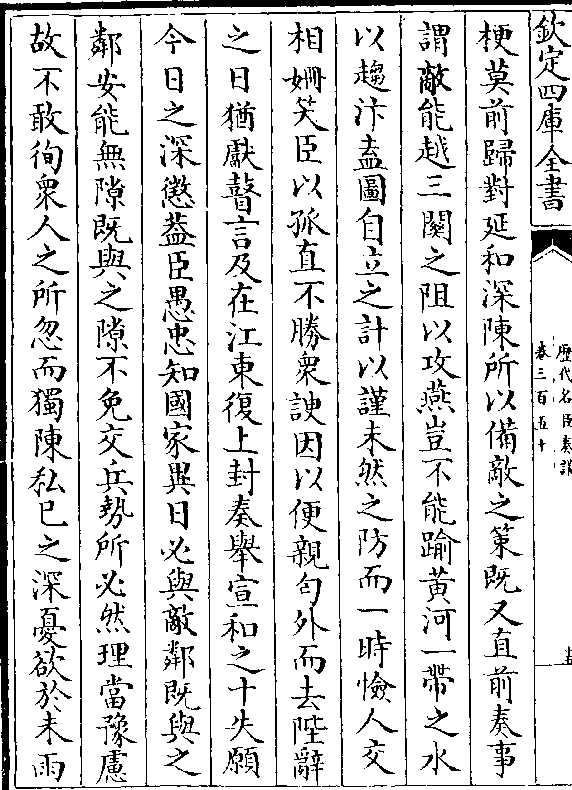 欽定四庫全書
歷代名臣奏議
卷三百五十
梗莫前歸對延和深陳所以備敵之策既又直前奏事
謂敵能越三關之阻以攻燕豈不能踰黄河一帶之水
以趨汴盍圖自立之計以謹未然之防而一時憸人交
相姍笑臣以孤直不勝衆諛因以便親匄外而去陛辭
之日猶獻瞽言及在江東復上封奏舉宣和之十失願
今日之深懲葢臣愚忠知國家異日必與敵鄰既與之
鄰安能無隙既與之隙不免交兵勢所必然理當豫慮
故不敢徇衆人之所忽而獨陳私已之深憂欲於未雨